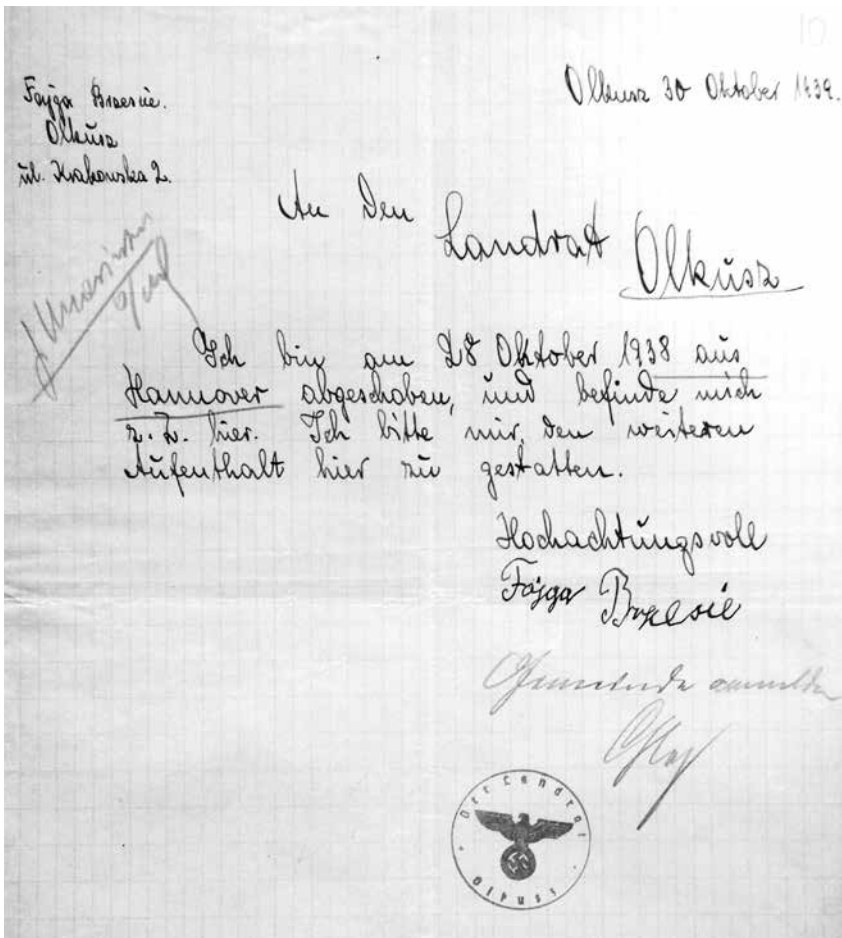 10
Olkusz 30 Oktober 1939.
Fajga Brzesie.
Olkusz
ul. Krakowska 2.
An Den
Landrat Olkusz
Ich bin am 28 Oktober 1938 aus
Hannover abgeschoben, und befinde mich
z. Z. hier. Ich bitte mir, den weiteren
Aufenthalt hier zu gestatten.
Hochachtungsvoll
Fajga Brzesie
Gemeinde anmelden
Der Landrat
Olkusz